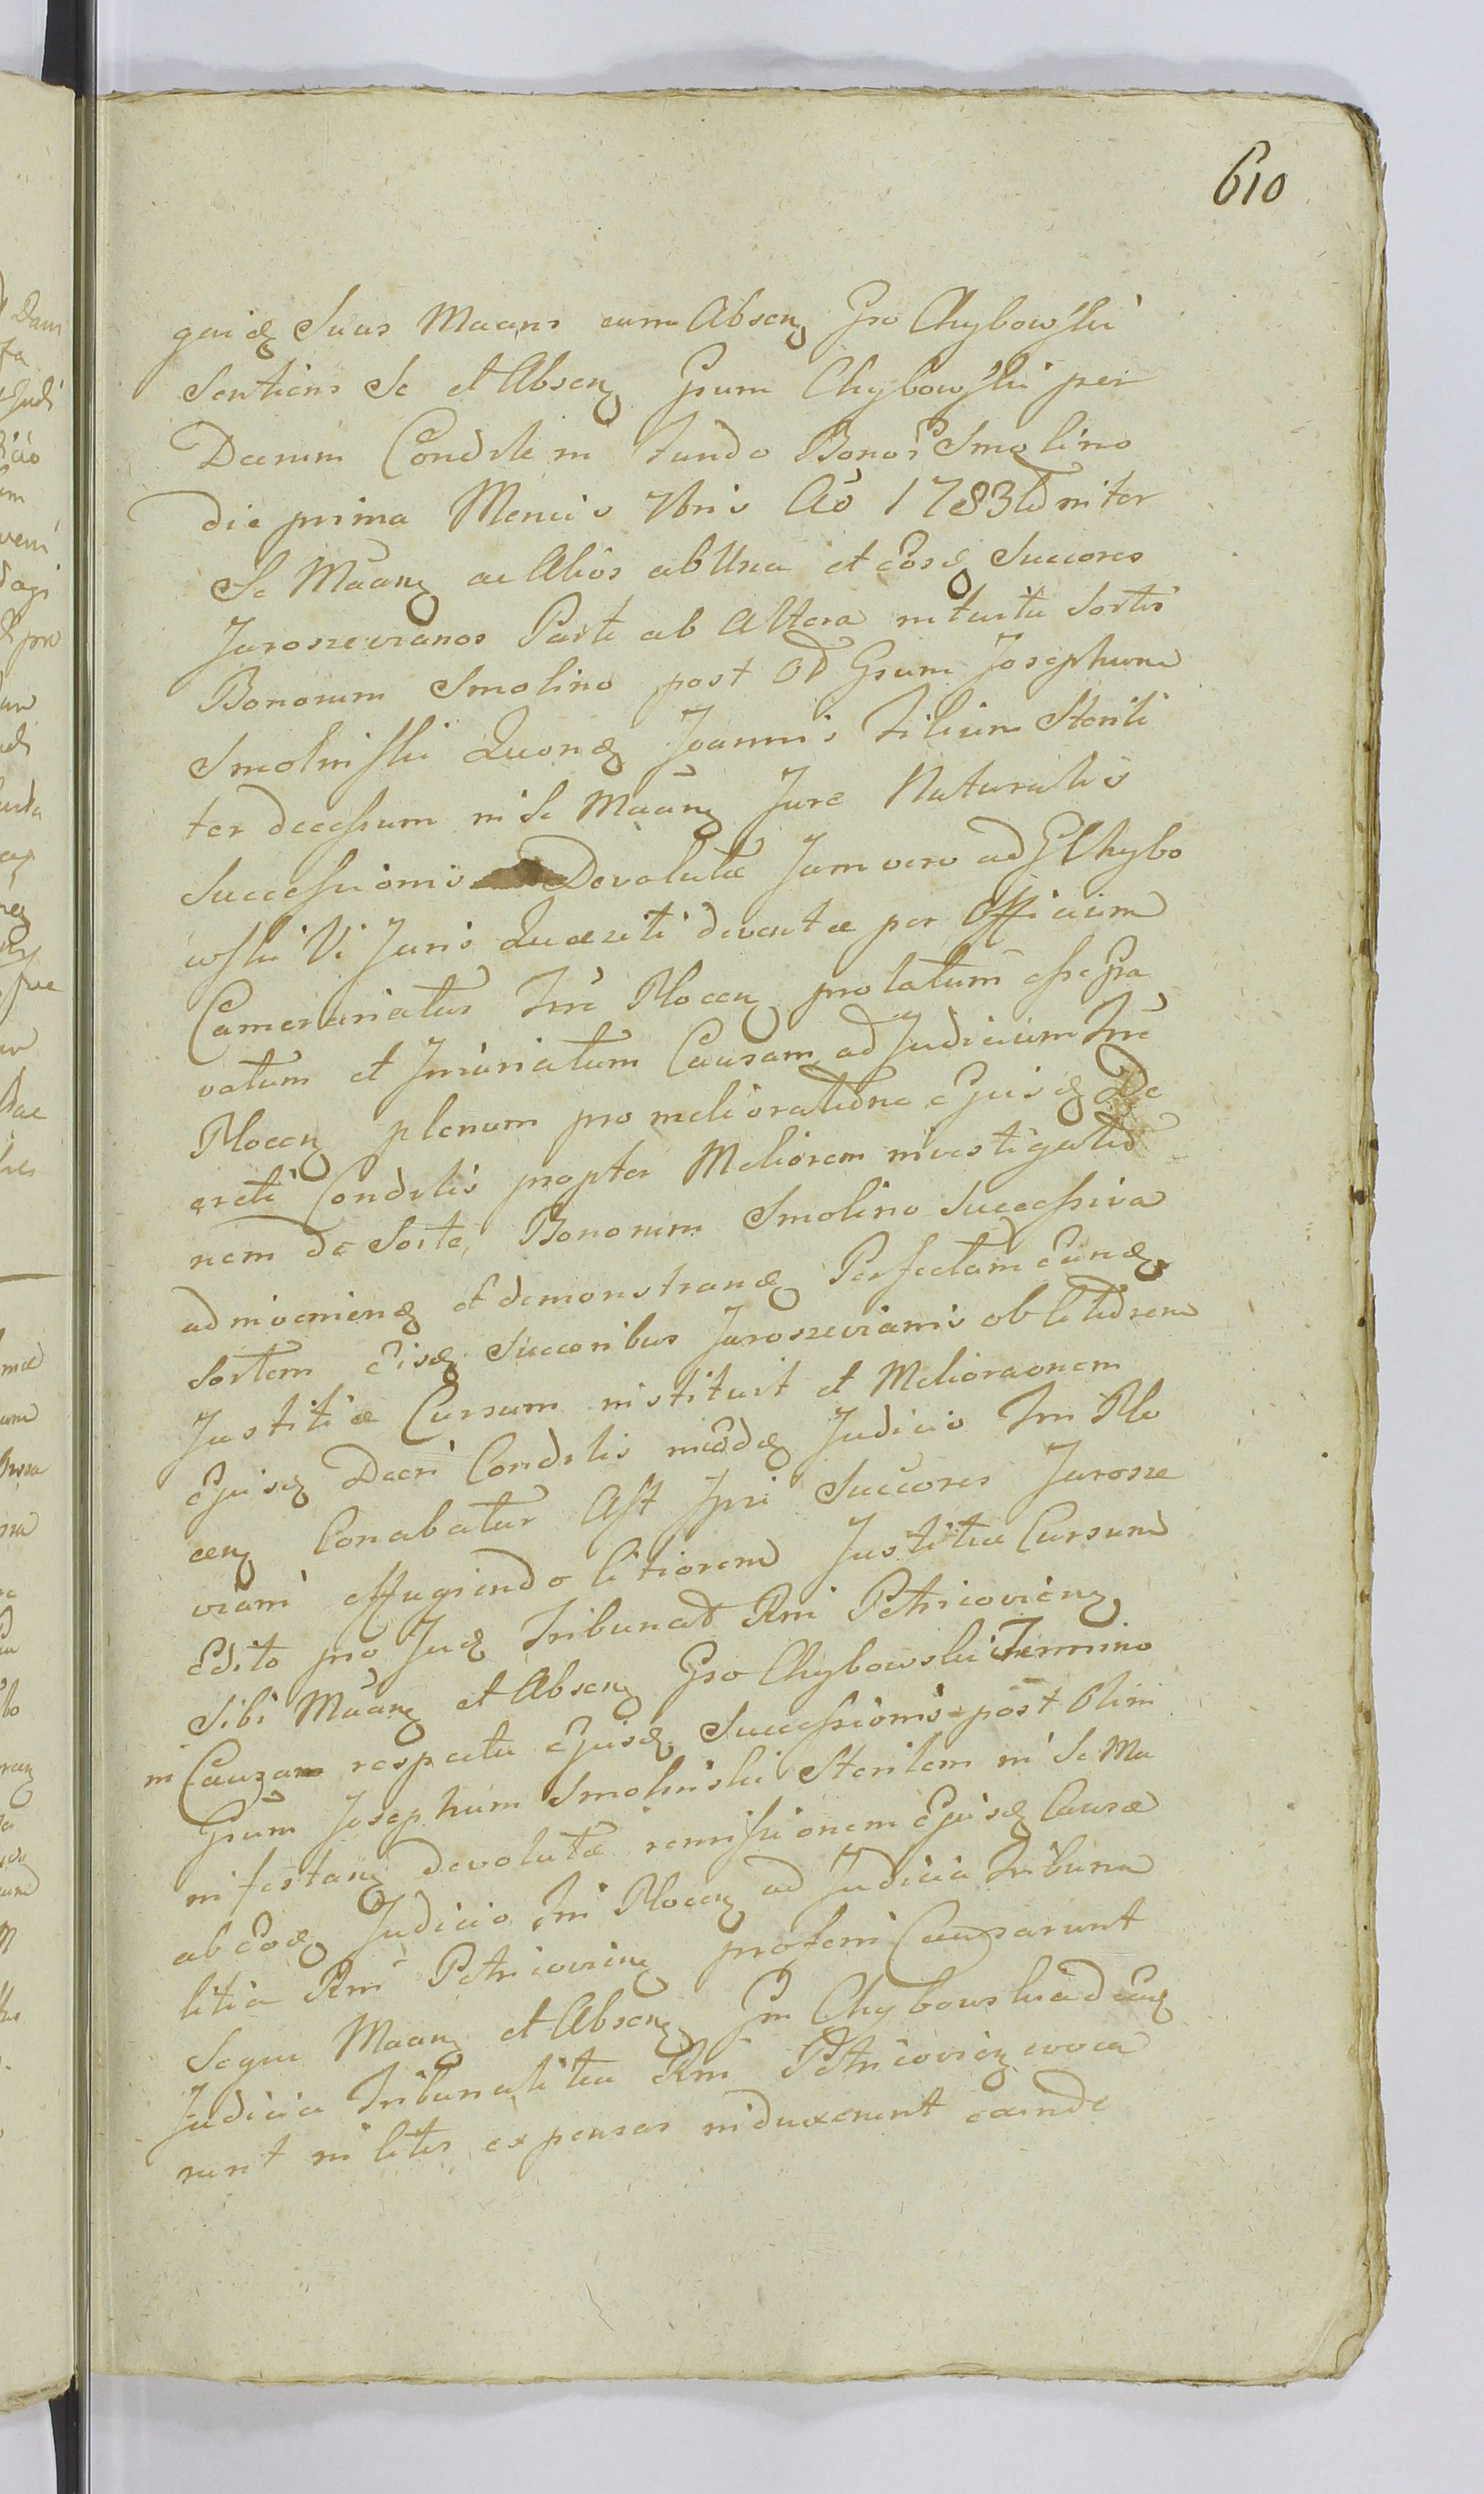 610
quidq Suus Maans cum Absenq Gso Chybowski
Sentiens Se et Absenq Gsum Chybowski per
Decrum Condsle in Fundo Bonor Smolino
die prima Mensis 7bris Ao 1783 inter
Se Maanq ac Alios ab Una et Eosq Succores
Jaroszevianos Parte ab Altera intuitu Sortis
Bonorum Smolino post OD Gsum Josephum
Smolinski Quonq Joannis Filium Sterili
ter decessum in Se Maanq Jure Naturalis
Successionis Devolutæ Jam vero ad G Chybo
wski Vi Juris Quæsiti deventæ per Officium
Camerariatus Trrē Plocenq prolatum esse Gra
vatum et Injuriatum Causam ad Judicium Trrē
Plocenq plenum pro melioratione Ejusq De
creti Condslis propter Meliorem investigatio
nem de Sorte Bonorum Smolino Successiva
ad invenienq et demonstranq Perfectam Eanq
Sortem Eisq Succoribus Jaroszevianis ob
Justitiæ Cursum instituit et Melioraonem
Ejusq Decri Condslis Judicio Trri Plo
cenq Conabatur Ast Ipsi Succores Jarosze
viani effugiendo Citiorem Justitiæ Cursum
Edito pro Judq Tribunal Rni Petricovienq
Sibi Maanq et Absenq Gso Chybowski Termino
in Causam respectu Ejusq Successionis post Olim
Gsum Josephum Smolinski Sterilem in Se Ma
nifestanq devolutæ remissionem Ejusq Causæ
ab Eoq Judicio Trri Plocenq ad Judicia Tribuna
litia Rni Petricovienq proferri Causarunt
Seque Maanq et Absenq Gm Chybowski ad Eaq
Judicia Tribunalitia Rni Petricovienq evoca
runt in litis expensas induxerunt exinde